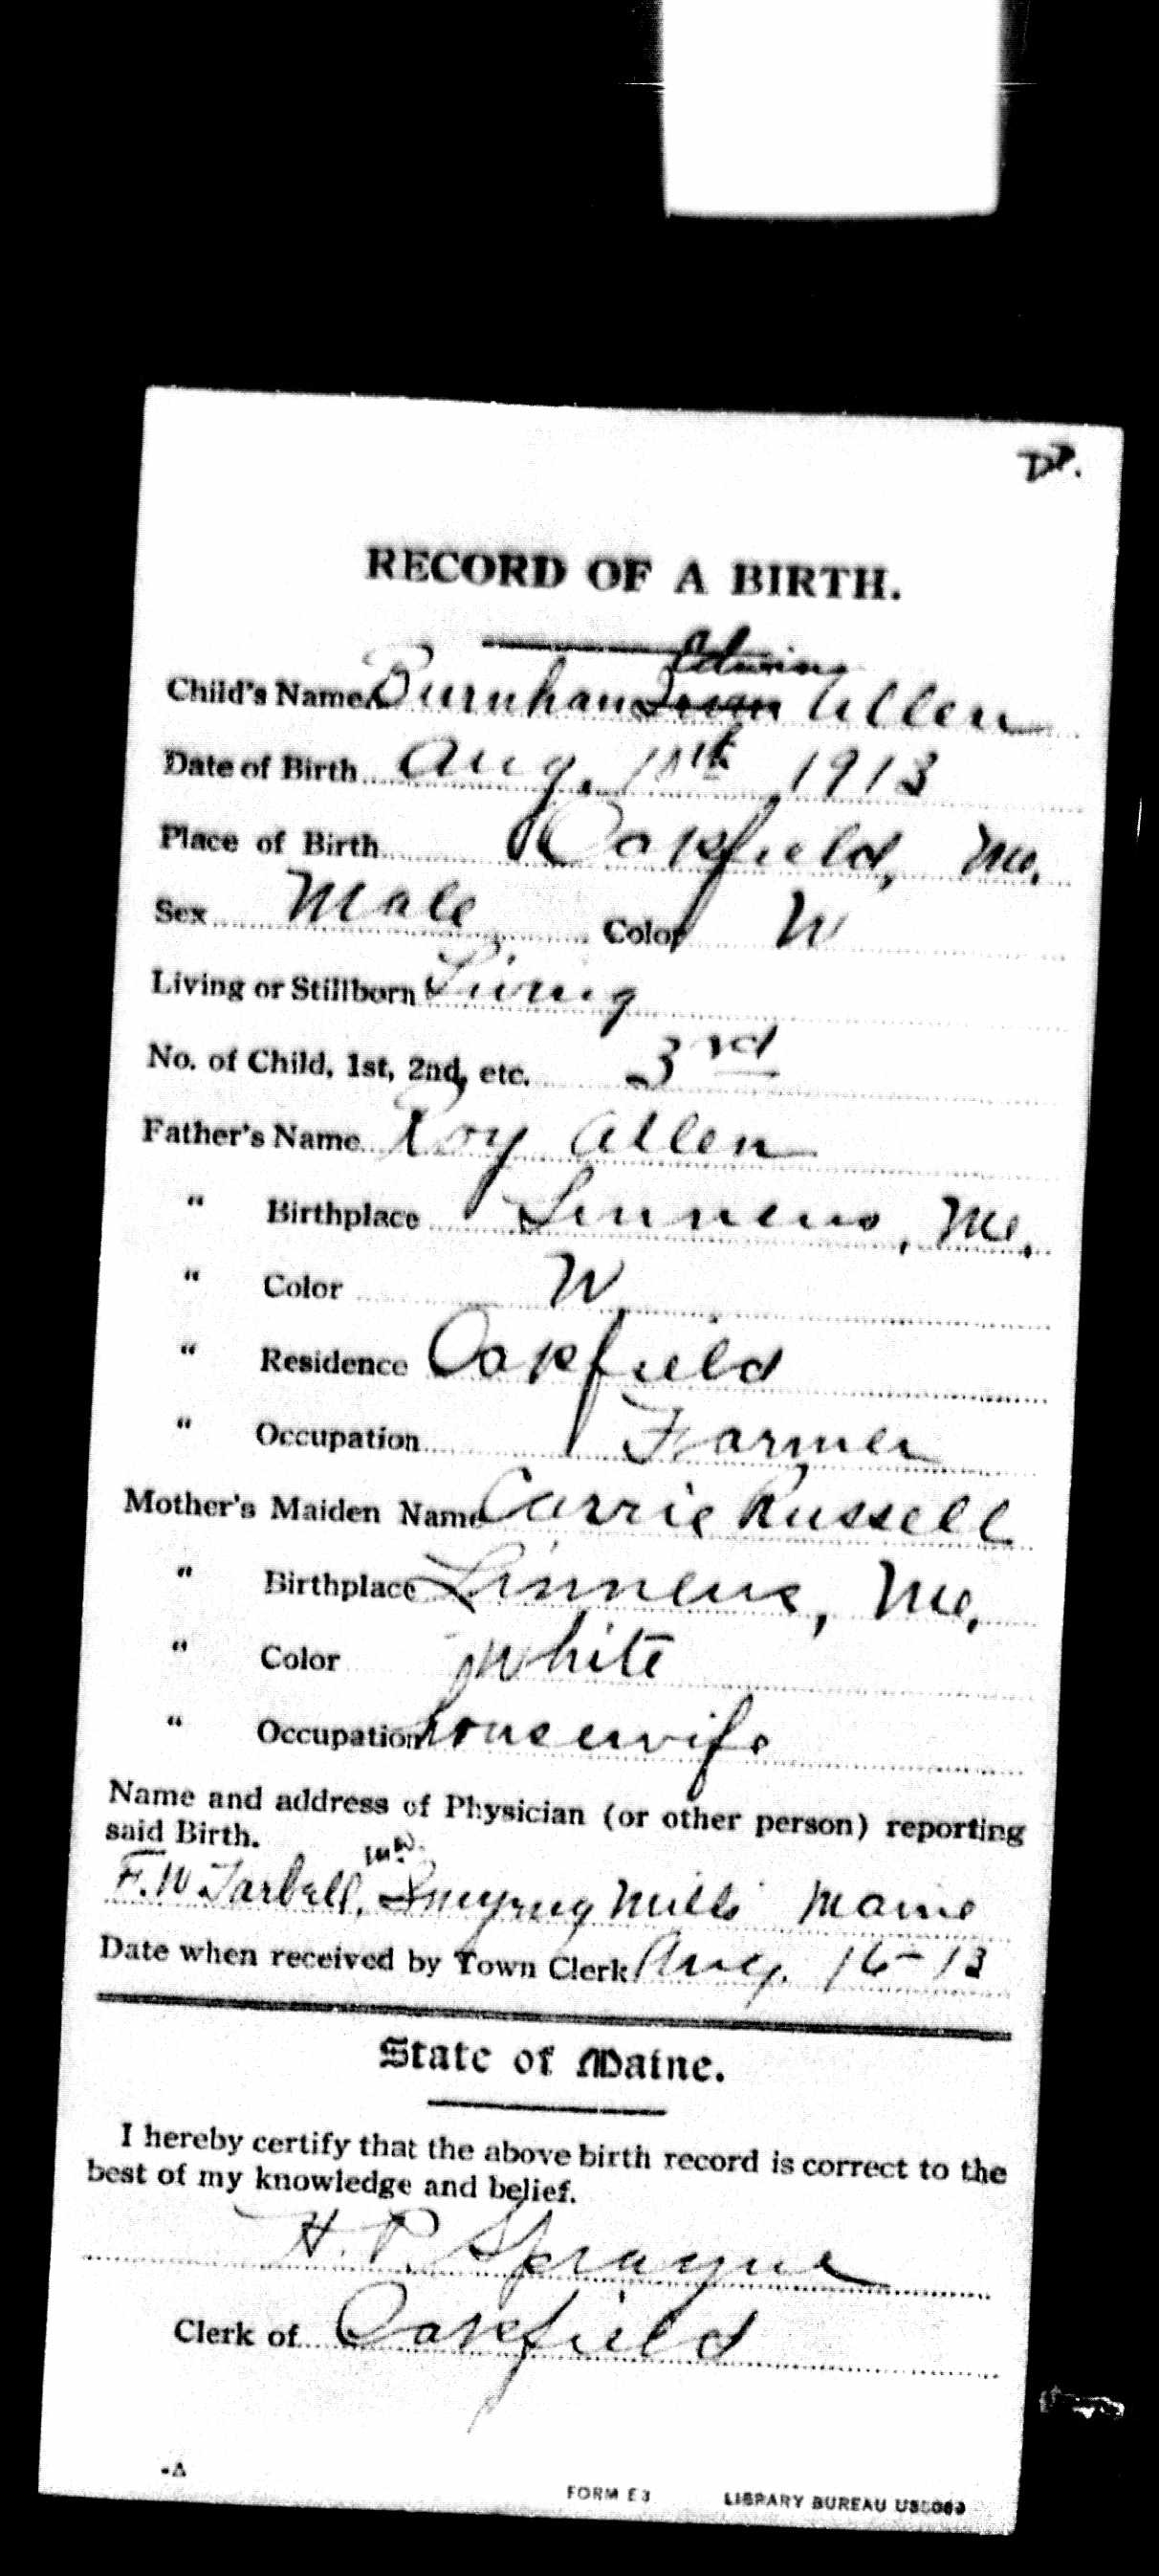 RECORD OF A BIRTH.
Edwin
Child's Name Burnham Allen
Date of Birth Aug. 10th 1913
Place of Birth Oakfield, Me.
Sex Male Color W
Living or Stillborn Living
No. of Child, 1st, 2nd, etc. 3rd
Father's Name Roy Allen
" Birthplace Linneus, Me.
" Color W
" Residence Oakfield
" Occupation Farmer
Mother's Maiden Name Carrie Russell
" Birthplace Linneus, Me.
" Color White
" Occupation housewife
Name and address of Physician (or other person) reporting
said Birth.
F. W. Tarbell, M.D. Smyrna Mills Maine
Date when received by Town Clerk Aug. 16-13
State of Maine.
I hereby certify that the above birth record is correct to the
best of my knowledge and belief.
H. P. Sprague
Clerk of Oakfield
-A
FORM E3 LIBRARY BUREAU